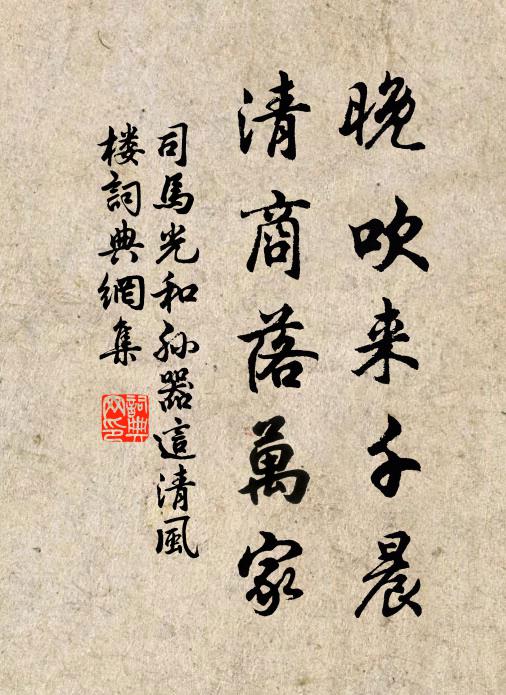 晚吹来千晨
清商落萬家
司馬光和孙器這清風
楼詞典網集
詞典網印